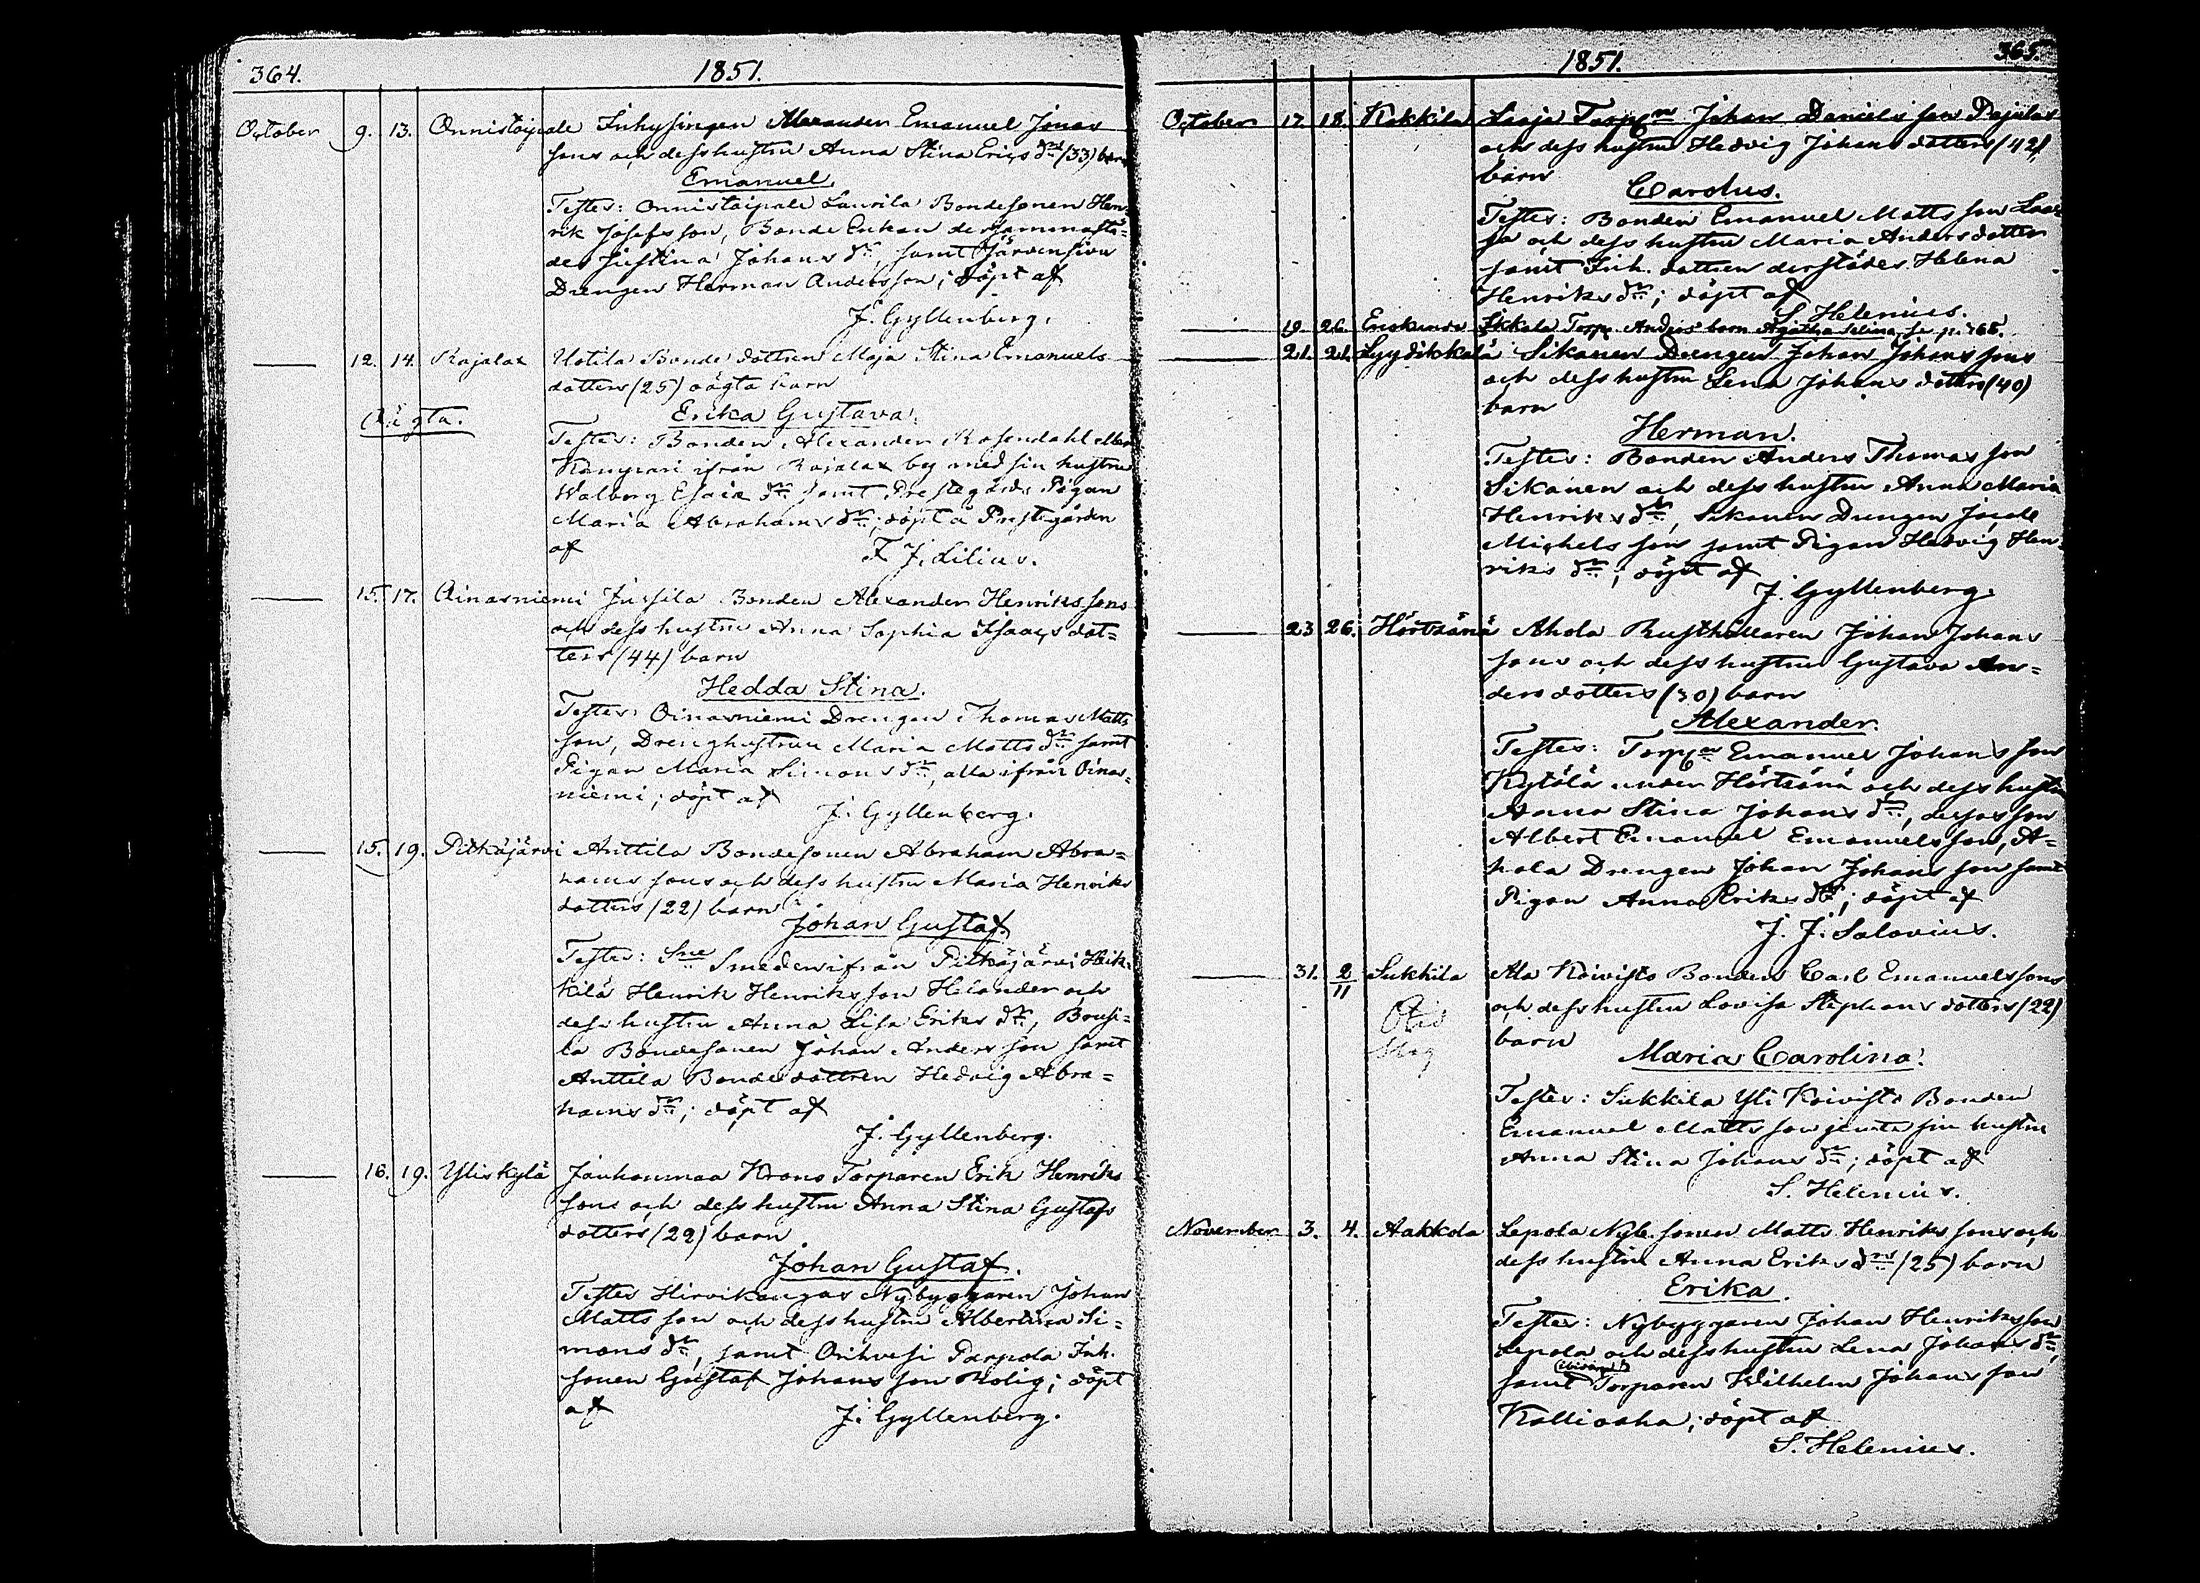 364. 1851.
October 9. 13. Onnistaipale Inhysingen Alexander Emanuel Jonas
sons och dess hustru Anna Stina Erics drs (33) barn
Emanuel.
Testes: Onnistaipale Laurila Bondesonen Hen-
rik Josefs son, Bonde Enkan dersammastä-
des Justina Johans dr, samt Järvensivu
Drengen Herman Anders son; döpt af
J. Gyllenberg.
12. 14. Kajalax Uotila Bonde dottren Maja Stina Emanuels
dotters (25) oägta barn
Oägta. Erika Gustava.
Testes: Bonden Alexander Rosendahl eller
ifrån Kajalax by med sin hustru
Walborg Esaiæ dr samt Prestegårds Pigan
Maria Abrahams dr; döpt å Prestgården
af F. J. Lilius.
15. 17. Oinasniemi Jussila Bonden Alexander Henriks sons
och dess hustru Anna Sophia Isaacs dot=
ters (44) barn
Hedda Stina.
Testes: Oinasniemi Drengen Thomas Matts
son, Drenghustrun Maria Matts dr samt
Pigan Maria Simons dr, alla ifrån Oinas-
niemi; döpt af J. Gyllenberg.
15. 19. Pitkäjärvi Anttila Bondesonen Abraham Abra=
hams sons och dess hustru Maria Henriks
dotters (22) barn
Johan Gustaf.
Testes: Sme Smeden ifrån Pitkäjärvi Heik-
kilä Henrik Henriks son Helander och
dess hustru Anna Lisa Eriks dr, Brusi=
la Bondesonen Johan Anders son samt
Anttila Bondedottren Hedvig Abra=
hams dr; döpt af
J. Gyllenberg.
16. 19. Yliskylä Jauhonmaa Krono Torparen Erik Henriks
sons och dess hustru Anna Stina Gustafs
dotters (29) barn
Johan Gustaf.
Testes Hirvikangas Nybyggaren Johan
Matts son och dess hustru Albertina Si=
mons dr, samt Orihvesi Parpola Inh.
sonen Gustaf Johans son Rolig; döpt
af J. Gyllenberg.
1851. 365.
October 17. 18. Kokkila Laaja Torpm Johan Daniels son Pajulas
och dess hustru Hedvig Johans dotters (42)
barn
Carolus.
Testes: Bonden Emanuel Matts son Laa-
ja och dess hustru Maria Anders dotter
samt Inh. dottren derstädes Helena
Henriks dr; döpt af
S. Helenius.
19. 26. Ikkala Torp. Anders barn Agatha Selina, se p. 368.
21. 21. Lyydikkälä Sikanen Drengen Johan Johans sons
och dess hustru Lena Johans dotters (40)
barn
Herman.
Testes: Bonden Anders Thomas son
Sikanen och dess hustru Anna Maria
Henriks dr, Sikanen Drengen Jacob
Michels son samt Pigan Hedvig Hen-
riks dr; döpt af
J. Gyllenberg.
23 26. Hörtsänä Ahola Rusthållaren Johan Johans
sons och dess hustru Gustava An=
ders dotters (30) barn
Alexander.
Testes: Torpm Emanuel Johans son
Kytölä under Hörtsänä och dess hustru
Anna Stina Johans dr, desses son
Albert Emanuel Emanuels son, A=
hola Drengen Johan Johans son samt
Pigan Anna Eriks dr; döpt af
J. J. Salovius.
31. 2/11 Sukkila Ala Koivisto Bonden Carl Emanuelssons
och dess hustru Lovisa Stephans dotters (22)
barn
Maria Carolina.
Testes: Sukkila Yli Koivisto Bonden
Emanuel Matts son jemte sin hustru
Anna Stina Johans dr; döpt af
S. Helenius.
November 3. 4. Aakkola Lepola Nyb. sonen Matts Henriks sons och
dess hustru Anna Eriks drs (25) barn
Erika.
Testes: Nybyggaren Johan Henriks son
Lepola och dess hustru Lena Johans dr,
samt Torparen Wilhelm Johans son
Kallioaha; döpt af
S. Helenius.